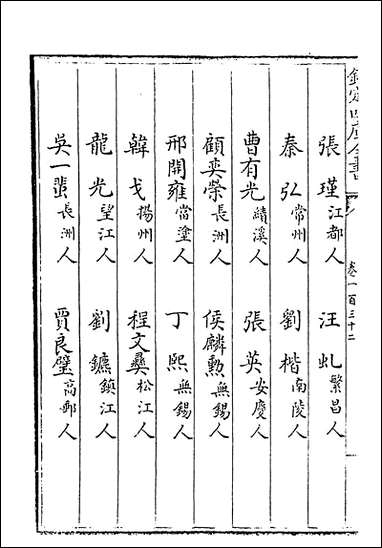 欽定四庫全書
卷一百三十二
張瑾江都人 汪虬繁昌人
秦弘常州人 劉楷南陵人
曹有光績溪人 張英安慶人
顧奕榮長洲人 侯麟勲無錫人
邢開雍當塗人 丁熙無錫人
韓戈揚州人 程文彞松江人
龍光望江人 劉鑣鎮江人
吳一蜚長洲人 賈良璧高郵人